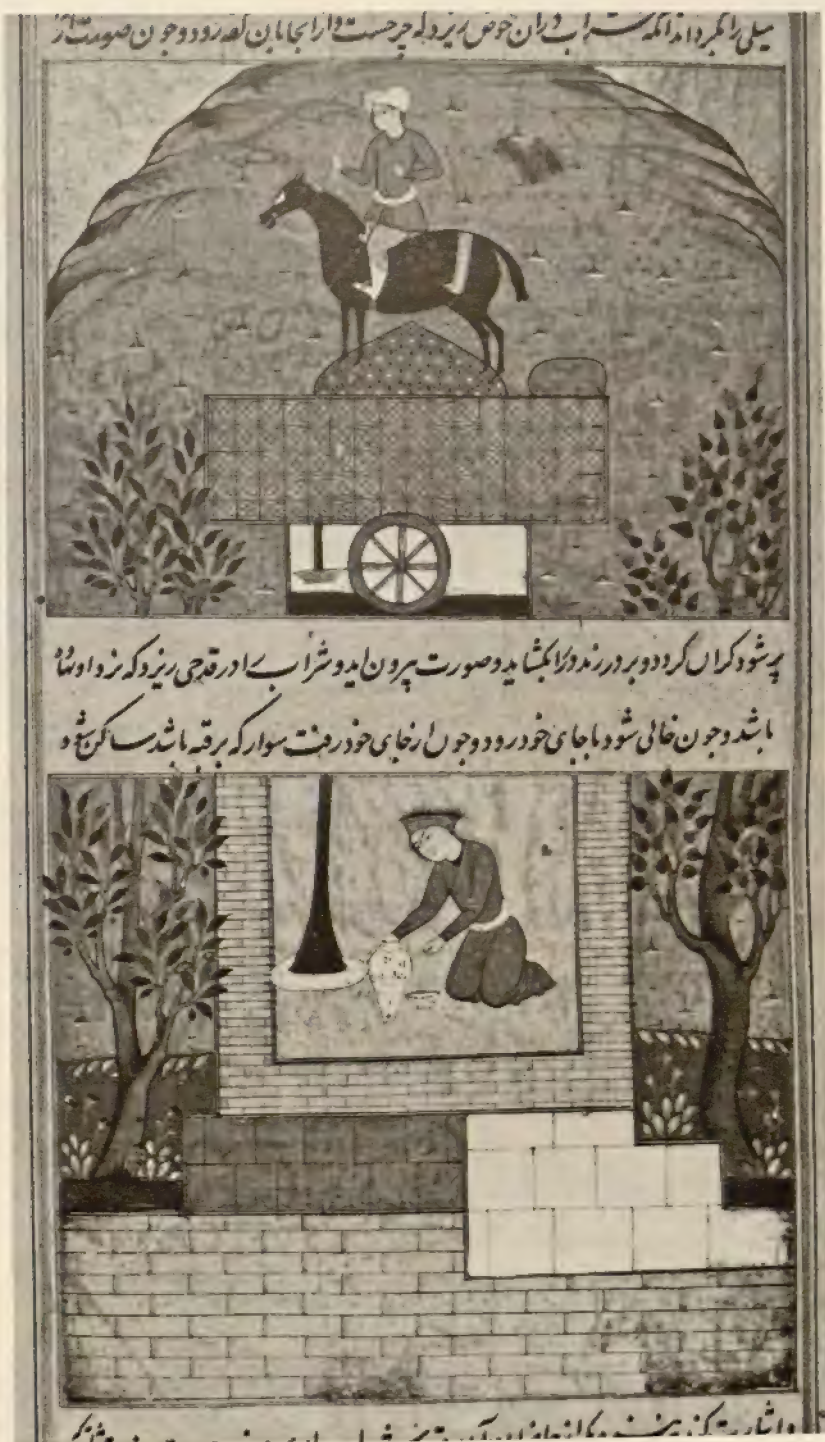 میلی را بگرداند آنکه شراب در آن حوض ریزد که چرخست و از آنجا بابان کفه رود و چون صورت از
پر شود کران گردد و بر در زند در را بگشاید و صورت بیرون اید و شراب را در قدحی ریزد که نزد او نهاده
باشد و جون خالی شود با جای خود رود و جون از جای خود رفت سوار که بر قبه باشد ساکن شود